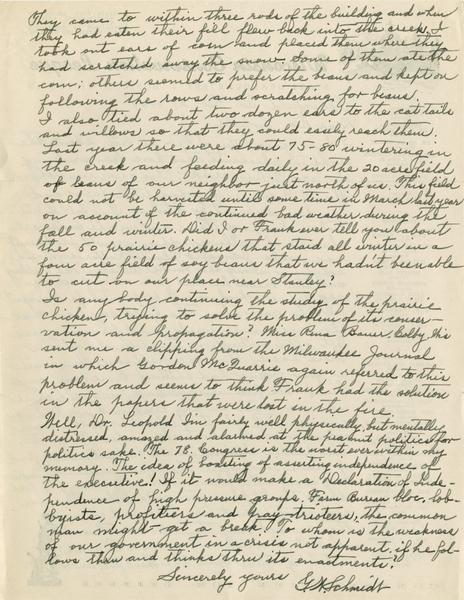 They came to within three rods of the building and when
they had eaten their fill flew back into the creek. I
took out ears of corn and placed them where they
had scratched away the snow. Some of them ate the
corn; others seemed to prefer the beans and kept on
following the rows and scratching for beans.
I also tied about two dozen ears to the cat tails
and willows so that they could easily reach them.
Last year there were about 75-80 wintering in
the creek and feeding daily in the 20 acre field
of beans of our neighbor just north of us. This field
could not be harvested until some time in March last year
on account of the continued bad weather during the
fall and winter. Did I or Frank ever tell you about
the 50 prairie chickens that staid all winter in a
four acre field of soy beans that we hadn't been able
to cut on our place near Stanley?
Is any body continuing the study of the prairie
chicken, trying to solve the problem of its conser-
vation and propagation? Miss Bauer, Colby, Wis
sent me a clipping from the Milwaukee Journal
in which Gordon McQuarrie again referred to this
problem and seems to think Frank had the solution
in the papers that were lost in the fire.
Well, Dr. Leopold I'm fairly well physically, but mentally
distressed, amazed and alarmed at the peanut politics for
politics sake. The 78. Congress is the worst ever within my
memory. The idea of boasting of asserting independence of
the executive! If it would make a Declaration of Inde-
pendence of high pressure groups, Farm Bureau bloc, lob-
byists, profiteers and the common
man might get a break. To whom is the weakness
of our government in a crisis not apparent, if he fol-
lows them and thinks thru its enactments.
Sincerely yours
G.W. Schmidt